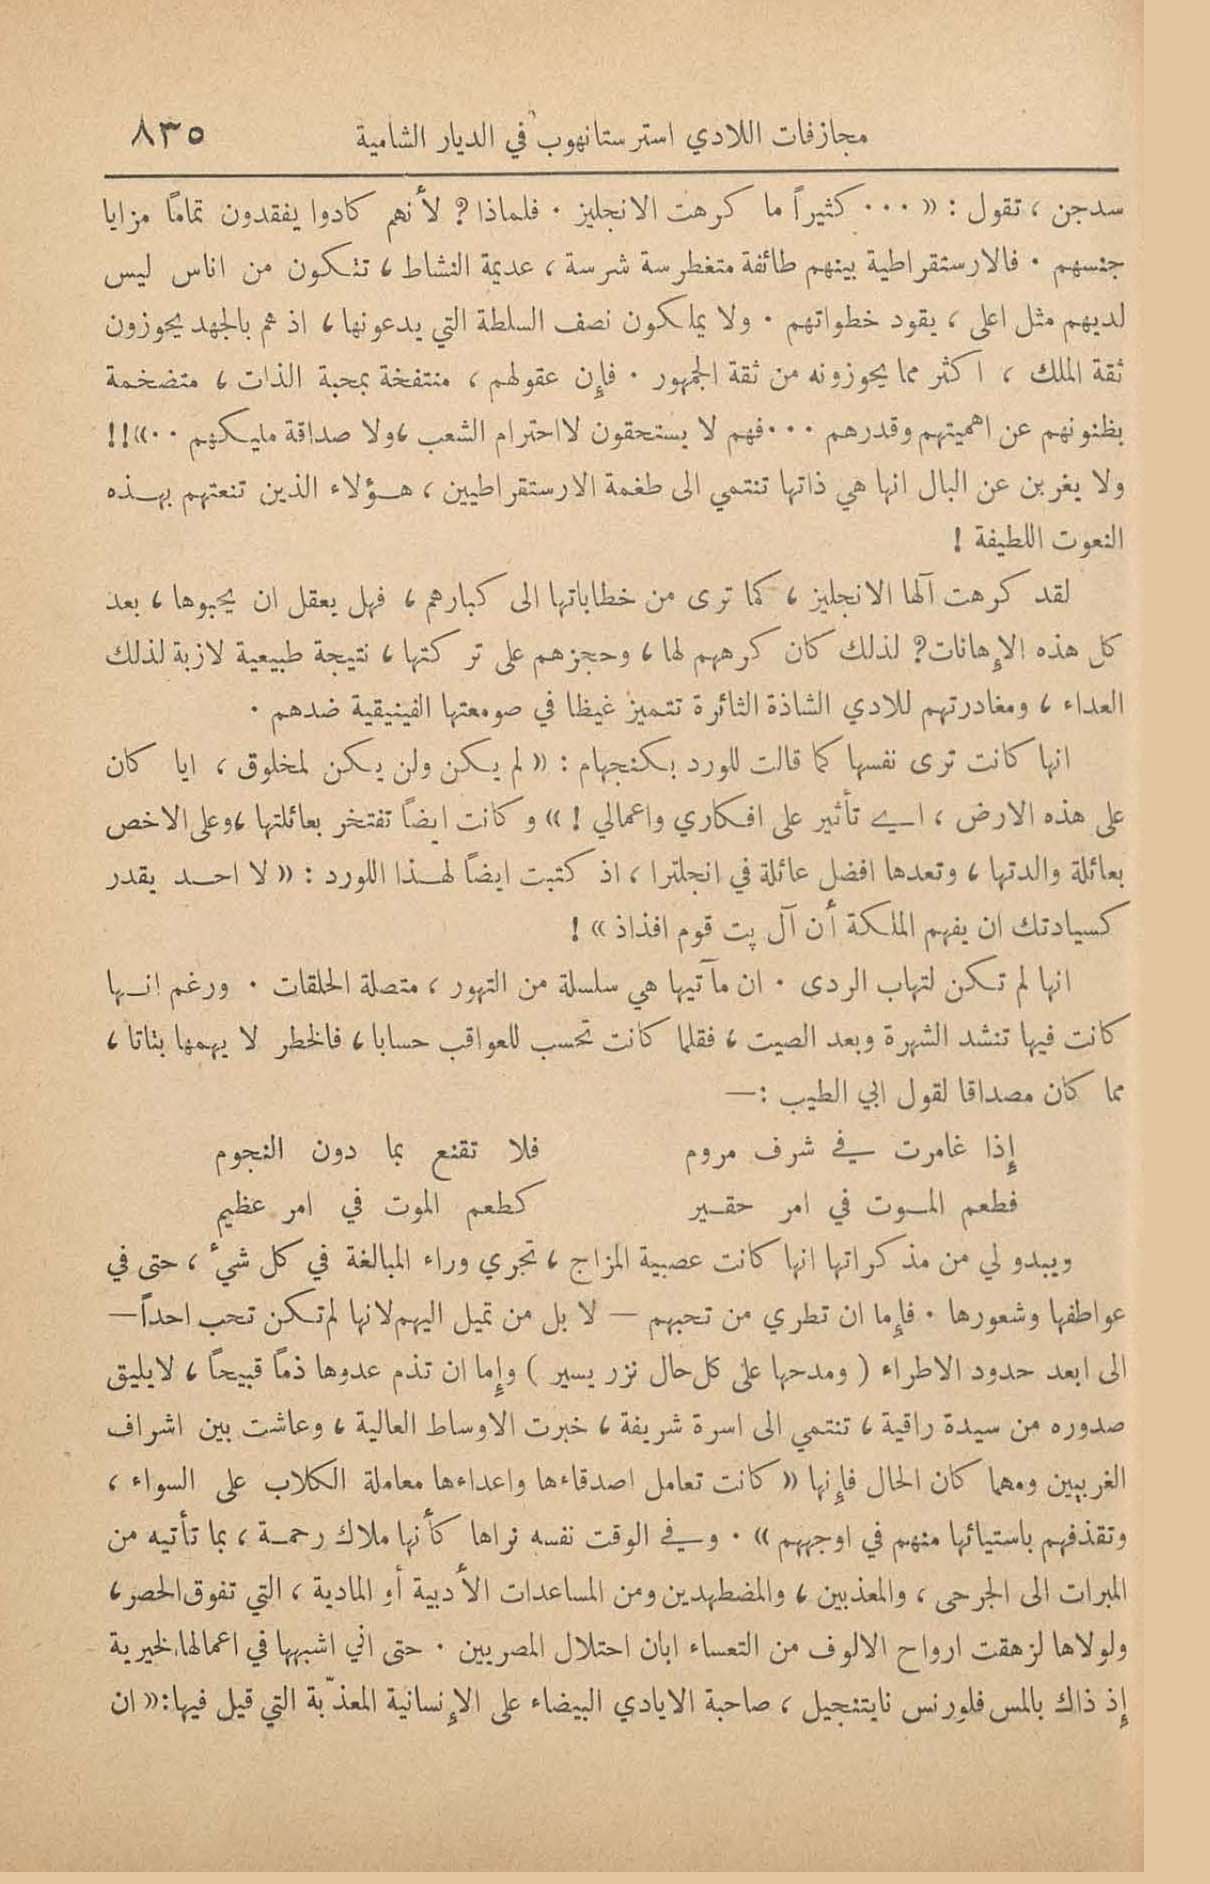 مجازفات اللادي استر ستانهوب في الديار الشامية ٨٣٥
سدجن ، تقول : « ٠٠٠ كثيراً ما كرهت الانجليز ٠ فلماذا ? لأنهم كادوا يفقدون تمامًا مزايا
جنسهم ٠ فالارستقراطية بينهم طائفة متغطرسة شرسة ، عديمة النشاط ، تتكون من اناس ليس
لديهم مثل اعلى ، يقود خطواتهم ٠ ولا يملكون نصف السلطة التي يدعونها ، اذ هم بالجهد يحوزون
ثقة الملك ، اكثر مما يحوزونه من ثقة الجمهور ٠ فإن عقولهم ، منتفخة بمحبة الذات ، متضخمة
بظنونهم عن اهميتهم وقدرهم ٠٠٠ فهم لا يستحقون لا احترام الشعب ، ولا صداقة مليكهم ٠٠ » !!
ولا يغربن عن البال انها هي ذاتها تنتمي الى طغمة الارستقراطيين ، هـؤلاء الذين تنعتهم بهـذه
النعوت اللطيفة !
لقد كرهت آلها الانجليز ، كما ترى من خطاباتها الى كبارهم ، فهل يعقل ان يحبوها ، بعد
كل هذه الإهانات ? لذلك كان كرههم لها ، وحجزهم على تركتها ، نتيجة طبيعية لازبة لذلك
العداء ، ومغادرتهم للادي الشاذة الثائرة تتميز غيظا في صومعتها الفينيقية ضدهم ٠
انها كانت ترى نفسها كما قالت للورد بكنجهام : « لم يكن ولن يكن لمخلوق ، ايا كان
على هذه الارض ، اي تأثير على افكاري واعمالي ! » وكانت ايضاً تفتخر بعائلتها ، وعلى الاخص
بعائلة والدتها ، وتعدها افضل عائلة في انجلترا ، اذ كتبت ايضاً لهـذا اللورد : « لا احـد يقدر
كسيادتك ان يفهم الملكة أن آل پت قوم افذاذ » !
انها لم تكن لتهاب الردى ٠ ان مآتيها هي سلسلة من التهور ، متصلة الحلقات ٠ ورغم انـها
كانت فيها تنشد الشهرة وبعد الصيت ، فقلما كانت تحسب للعواقب حسابا ، فالخطر لا يهمها بتاتا ،
مما كان مصداقا لقول ابي الطيب : —
إذا غامرت في شرف مروم فلا تقنع بما دون النجوم
فطعم المـوت في امر حقـير كطعم الموت في امر عظيم
ويبدو لي من مذكراتها انها كانت عصبية المزاج ، تجري وراء المبالغة في كل شيء ، حتى في
عواطفها وشعورها ٠ فإما ان تطري من تحبهم — لا بل من تميل اليهم لانها لم تكن تحب احداً —
الى ابعد حدود الاطراء ( ومدحها على كل حال نزر يسير ) وإما ان تذم عدوها ذماً قبيحاً ، لا يليق
صدوره من سيدة راقية ، تنتمي الى اسرة شريفة ، خبرت الاوساط العالية ، وعاشت بين اشراف
الغربيين ومهما كان الحال فإنها « كانت تعامل اصدقاءها واعداءها معاملة الكلاب على السواء ،
وتقذفهم باستيائها منهم في اوجههم » ٠ وفي الوقت نفسه نراها كأنها ملاك رحمـة ، بما تأتيه من
المبرات الى الجرحى ، والمعذبين ، والمضطهدين ومن المساعدات الأدبية أو المادية ، التي تفوق الحصر ،
ولولاها لزهقت ارواح الالوف من التعساء ابان احتلال المصريين ٠ حتى اني اشبهها في اعمالها الخيرية
إذ ذاك بالمس فلورنس نايتنجيل ، صاحبة الايادي البيضاء على الإنسانية المعذّبة التي قيل فيها : « ان